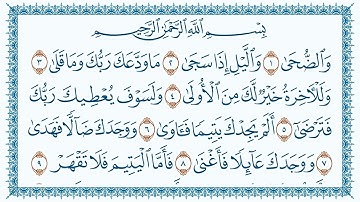 بِسْمِ اللَّهِ الرَّحْمَٰنِ الرَّحِيمِ
وَالضُّحَىٰ ١ وَاللَّيْلِ إِذَا سَجَىٰ ٢ مَا وَدَّعَكَ رَبُّكَ وَمَا قَلَىٰ ٣
وَلَلْآخِرَةُ خَيْرٌ لَّكَ مِنَ الْأُولَىٰ ٤ وَلَسَوْفَ يُعْطِيكَ رَبُّكَ
فَتَرْضَىٰ ٥ أَلَمْ يَجِدْكَ يَتِيمًا فَآوَىٰ ٦ وَوَجَدَكَ ضَالًّا فَهَدَىٰ
٧ وَوَجَدَكَ عَائِلًا فَأَغْنَىٰ ٨ فَأَمَّا الْيَتِيمَ فَلَا تَقْهَرْ ٩